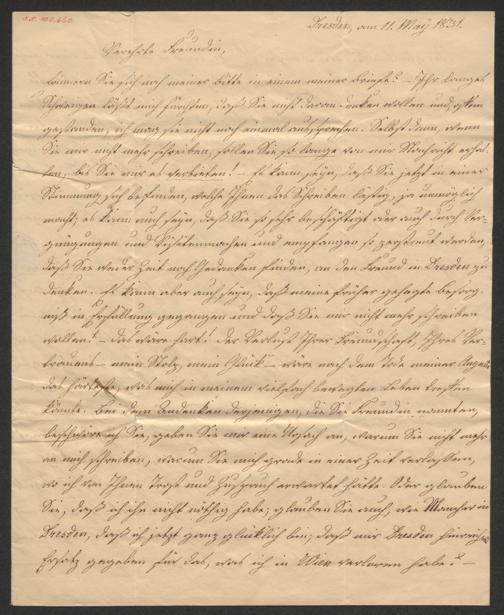 Dresden, am 11. May 1831.
Verehrte Freundin,
Erinnern Sie sich noch meiner Bitte in einem meiner Briefe? – Ihr langes
Schweigen läßt mich fürchten, daß Sie nicht daran denken wollen und, offen
gestanden, ich mag sie nicht noch einmal aussprechen. Selbst dann, wenn
Sie mir nicht mehr schreiben, sollen Sie so lange von mir Nachricht erhal-
ten, bis Sie mir es verbieten! – Es kann seyn, daß Sie jetzt in einer
Stimmung sich befinden, welche Ihnen das Schreiben lästig, ja unmöglich
macht; es kann auch seyn, daß Sie so sehr beschäftigt oder auch durch Ver-
gnügungen und Visitenmachen und empfangen so zerstreut werden,
daß Sie weder Zeit noch Gedanken finden, an den Freund in Dresden zu
denken. Es kann aber auch seyn, daß meine früher gehegte Besorg-
niß in Erfüllung gegangen und daß Sie mir nicht mehr schreiben
wollen! – das wäre hart! Der Verlust Ihrer Freundschaft, Ihres Ver-
trauens – mein Stolz, mein Glück – wäre nach dem Tode meiner
das härteste, was mich in meinem vielfach bewegten Leben treffen
könnte. Bei dem Andenken derjenigen, die Sie Freundin nannten,
beschwöre ich Sie, geben Sie mir eine Ursach an, warum Sie nicht mehr
an mich schreiben, warum Sie mich grade in einer Zeit verlassen,
wo ich von Ihnen Trost und Zuspruch erwartet hätte. Oder glauben
Sie, daß ich ihn nicht nöthig habe; glauben Sie auch, wie Mancher in
Dresden, daß ich jetzt ganz glücklich bin; daß mir Dresden hinreichend
Ersatz gegeben für das, was ich in Wien verloren habe? –